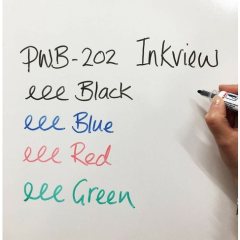 PWB-202 Inkview
eee Black
eee Blue
eee Red
eee Green